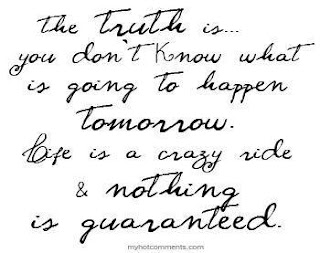 the truth is...
you don't know what
is going to happen
tomorrow.
Life is a crazy ride
& nothing
is guaranteed.
myhotcomments.com